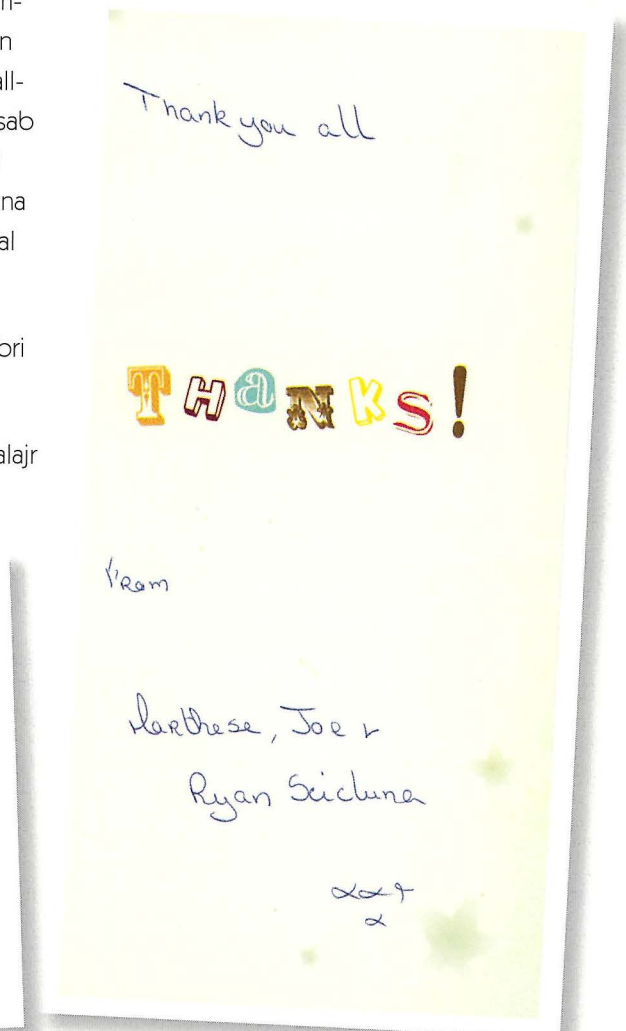 m-
n
all-
sab
na
al
ori
alajr
Thank you all
THaNKS!
From
Marthese, Joe &
Ryan Scicluna
xxx
x